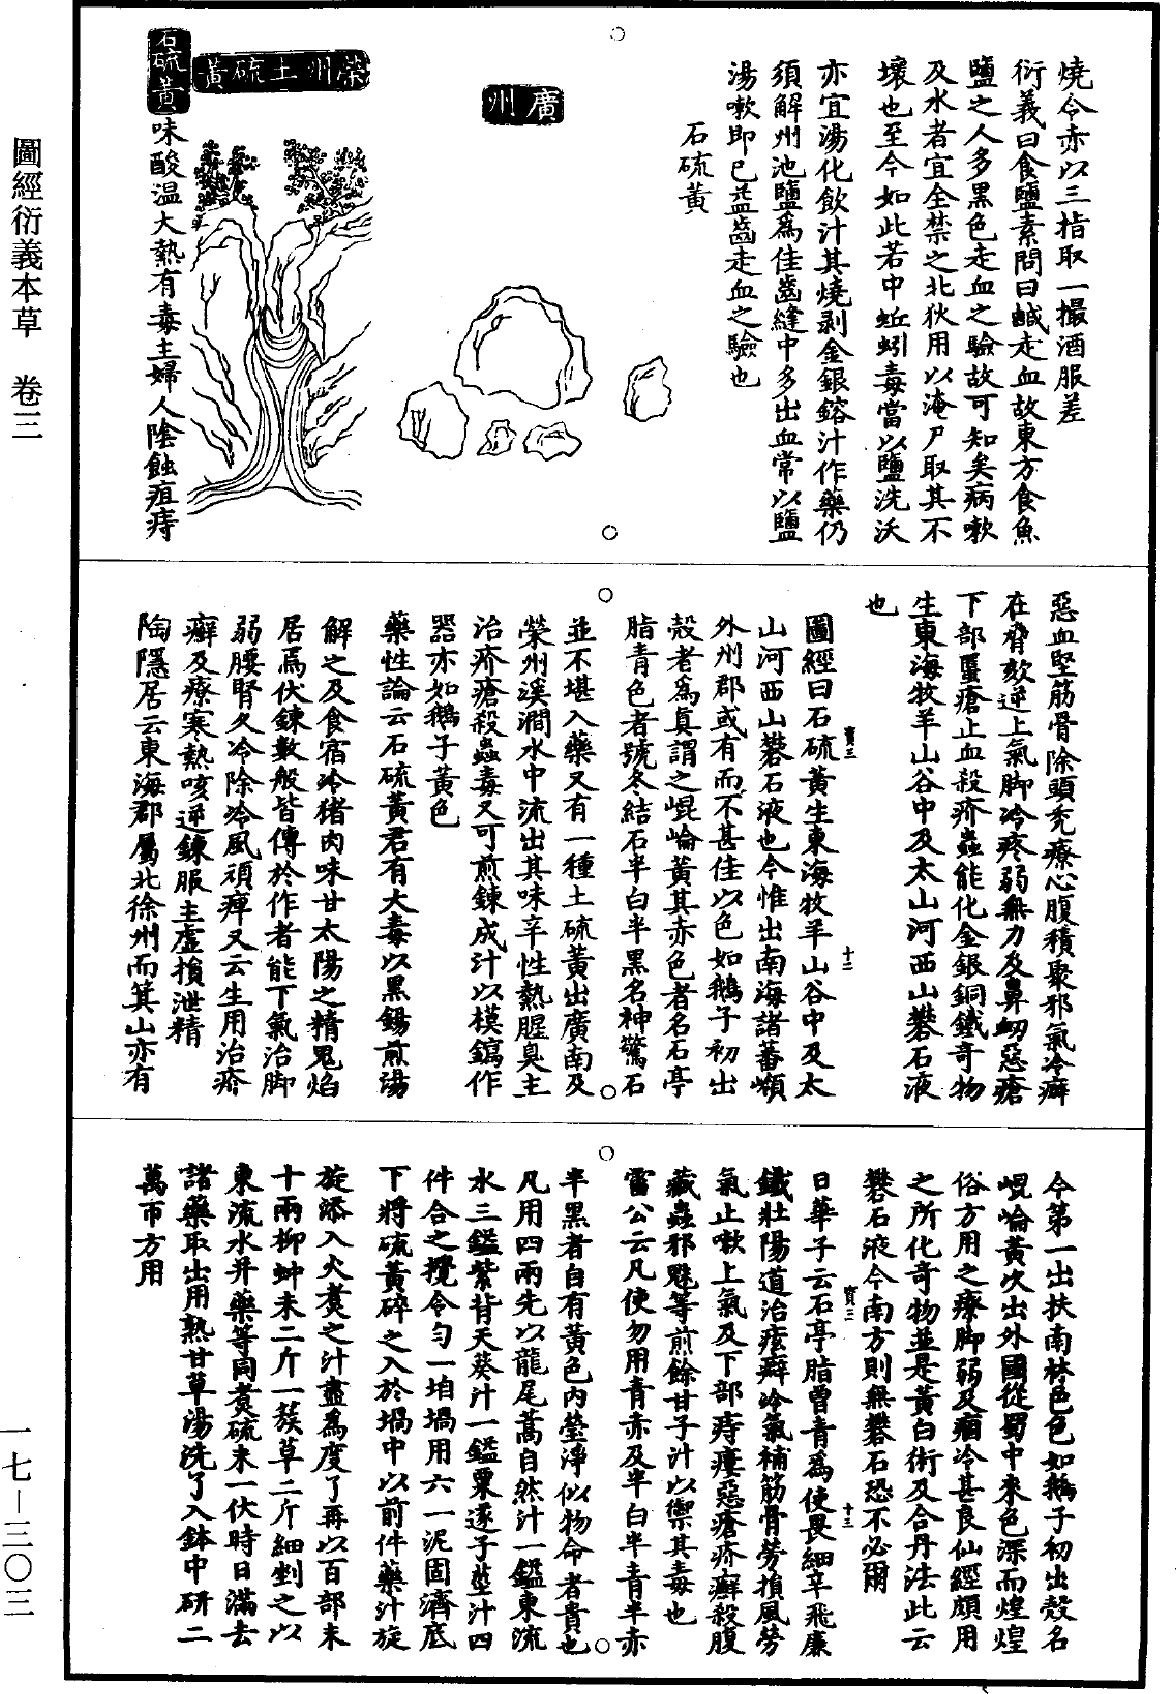 燒令赤以三指取一撮酒服差
衍義曰食鹽素問曰鹹走血故東方食魚
鹽之人多黑色走血之驗故可知矣病嗽
及水者宜全禁之北狄用以淹尸取其不
壞也至今如此若中蚯蚓毒當以鹽洗沃
亦宜湯化飲汁其燒剥金銀鎔汁作藥仍
須解州池鹽爲佳齒縫中多出血常以鹽
湯嗽即已益齒走血之驗也
石硫黃
廣州
榮州土硫黃
石硫黃味酸温大熱有毒主婦人陰蝕疽痔
惡血堅筋骨除頭禿療心腹積聚邪氣冷癖
在脅欬逆上氣脚冷疼弱無力及鼻衄惡瘡
下部䘌瘡止血殺疥蟲能化金銀銅鐵奇物
生東海牧羊山谷中及太山河西山礬石液
也
圖經曰石硫黃生東海牧羊山谷中及太
山河西山礬石液也今惟出南海諸蕃嶺
外州郡或有而不甚佳以色如鵝子初出
殼者爲真謂之崐崘黃其赤色者名石亭
脂青色者號冬結石半白半黑名神驚石
並不堪入藥又有一種土硫黃出廣南及
榮州溪澗水中流出其味辛性熱腥臭主
治疥瘡殺蟲毒又可煎鍊成汁以模鎬作
器亦如鵝子黃色
藥性論云石硫黃君有大毒以黑錫煎湯
解之及食宿冷猪肉味甘太陽之精鬼焰
居焉伏鍊數般皆傳於作者能下氣治脚
弱腰腎久冷除冷風頑痺又云生用治疥
癬及療寒熱咳逆鍊服主虛損泄精
陶隱居云東海郡屬北徐州而箕山亦有
寶三
十二
今第一出扶南林邑色如鵝子初出殼名
崐崘黃次出外國從蜀中來色深而煌煌
俗方用之療脚弱及痼冷甚良仙經頗用
之所化奇物並是黃白術及合丹法此云
礬石液今南方則無礬石恐不必爾
日華子云石亭脂曾青爲使畏細辛飛廉
鐵壯陽道治痃癖冷氣補筋骨勞損風勞
氣止嗽上氣及下部痔瘻惡瘡疥癬殺腹
藏蟲邪魅等煎餘甘子汁以禦其毒也
雷公云凡使勿用青赤及半白半青半赤
半黑者自有黃色内瑩淨似物命者貴也
凡用四兩先以龍尾蒿自然汁一鎰東流
水三鎰紫背天葵汁一鎰粟逐子莖汁四
件合之攪令匀一坩堝用六一泥固濟底
下將硫黃碎之入於堝中以前件藥汁旋
旋添入火煮之汁盡爲度了再以百部末
十兩柳蚛末二斤一簇草二斤細剉之以
東流水并藥等同煮硫末一伏時日滿去
諸藥取出用熟甘草湯洗了入鉢中研二
萬帀方用
寶三
十三
圖經衍義本草 卷三
一七—三〇三